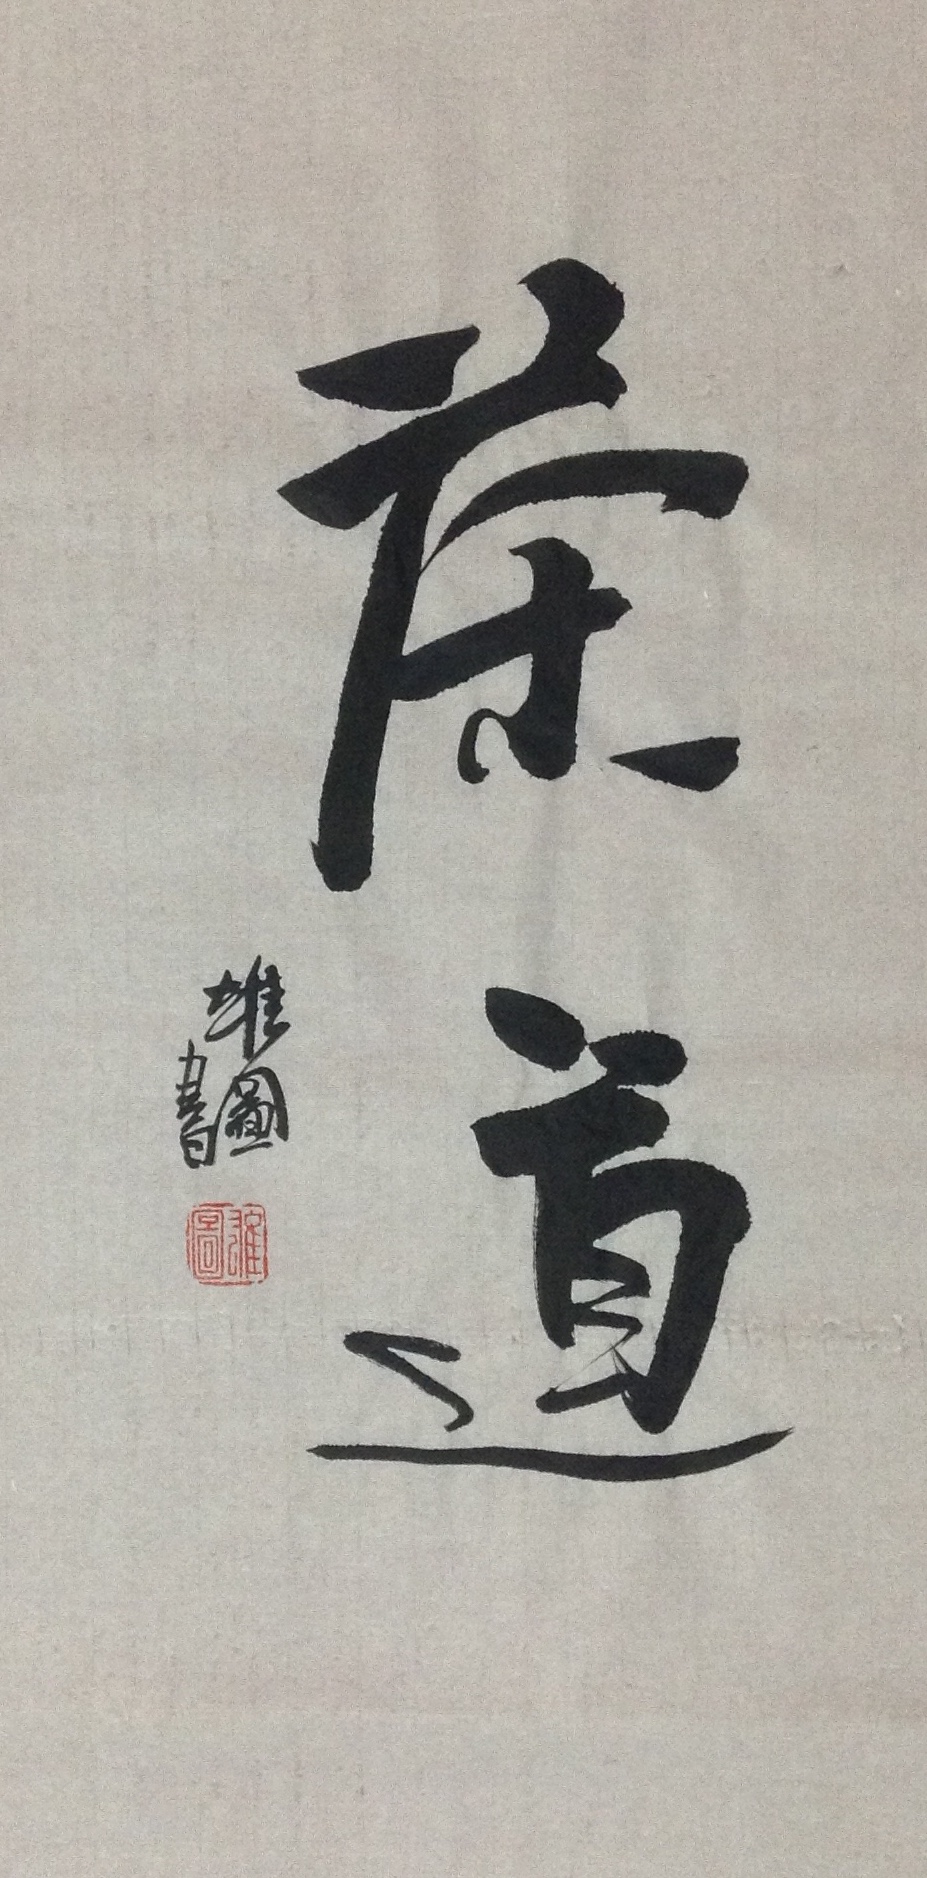 茶道
雄圖
書
雄圖